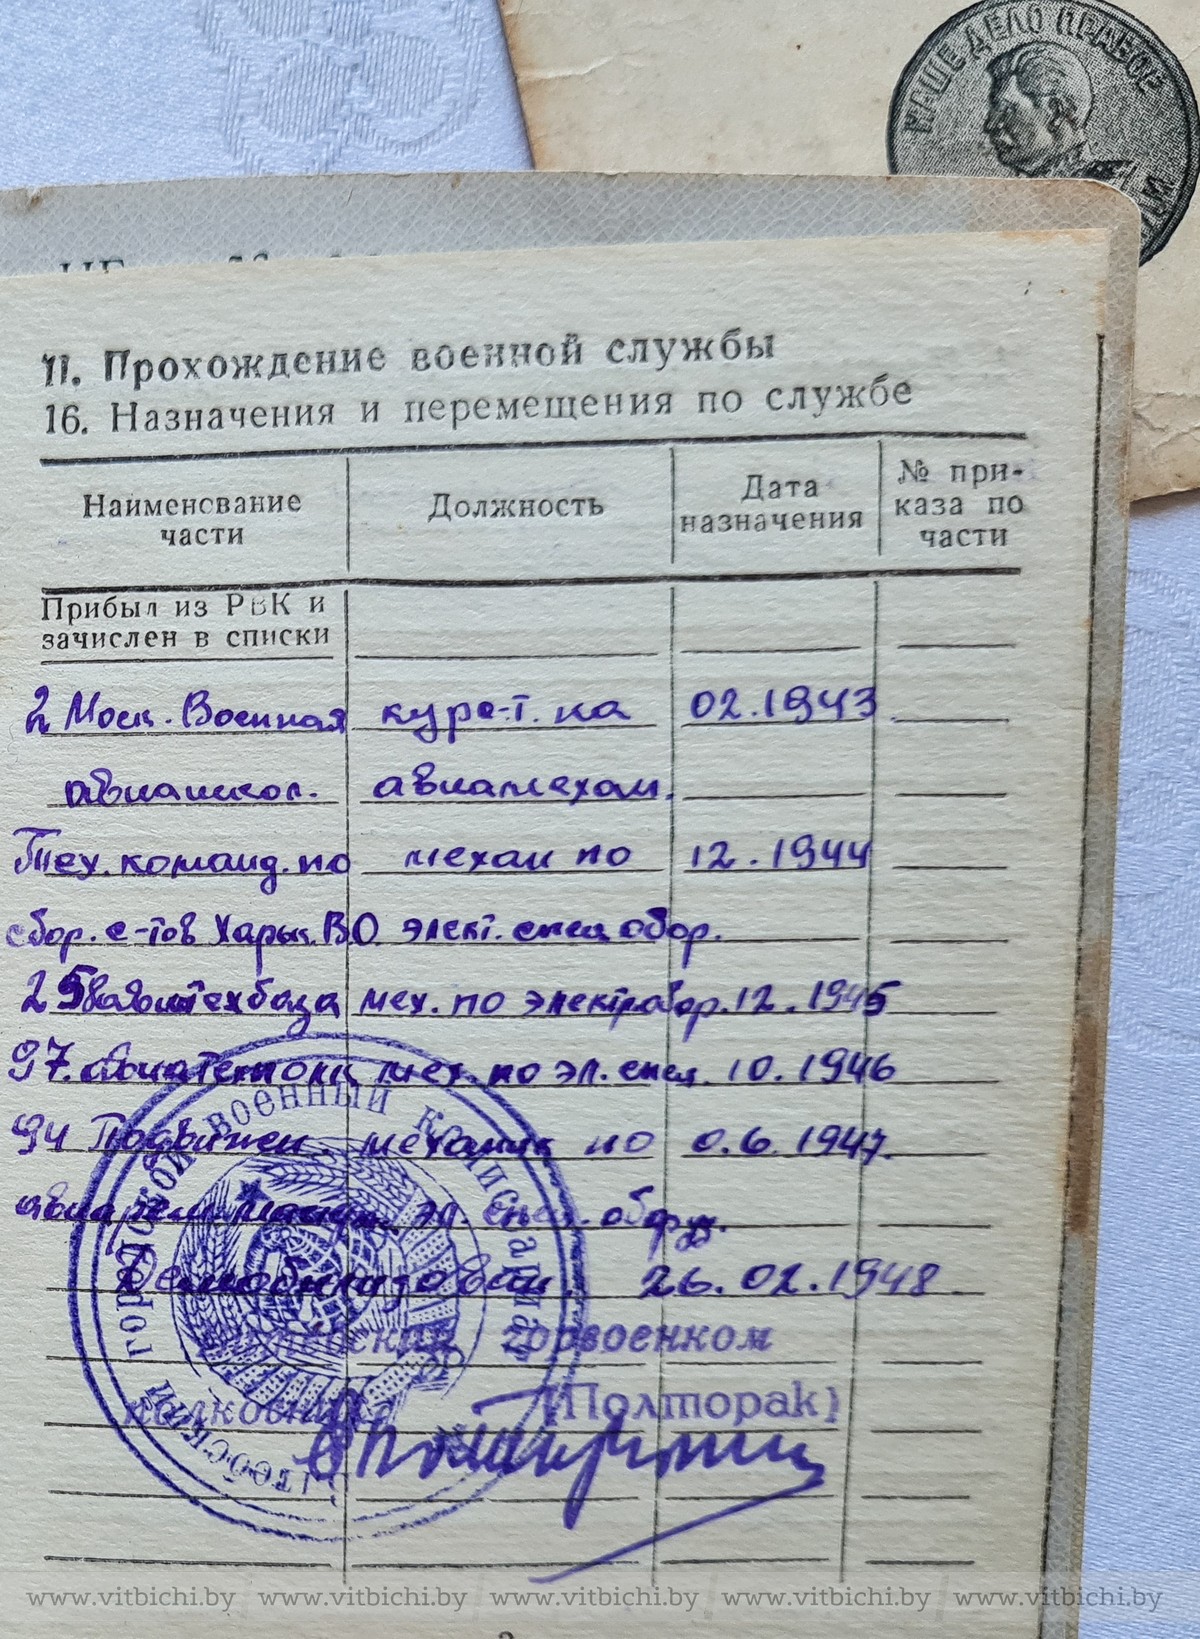 НАШЕ ДЕЛО ПРАВОЕ
11. Прохождение военной службы
16. Назначения и перемещения по службе
Наименование части
Должность
Дата назначения
№ приказа по части
Прибыл из РВК и
зачислен в списки
2 Моск. Военная курс-т. на 02.1943
авиашкол. авиамехан.
Тех. команд. по механ по 12.1944
сбор. с-тов Харьк. ВО элект. спец обор.
25 мех. по электрообор. 12.1945
97. мех. по эл. спец. 10.1946
94 Подвижн. механик по 0.6.1947.
эл. спец. оборуд.
Демобилизован. 26.02.1948.
Витебский горвоенком
полковник (Полторак)
Витебский городской военный комиссариат
www.vitbichi.by www.vitbichi.by www.vitbichi.by www.vitbichi.by www.vitbichi.by